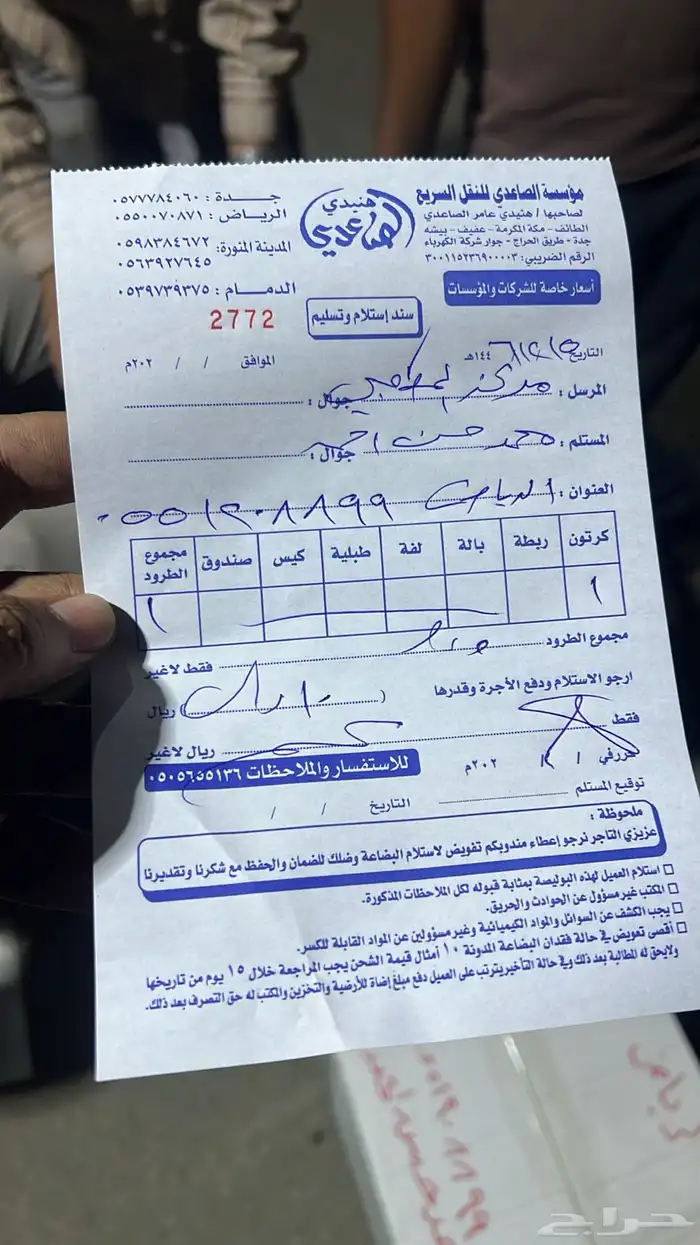 مؤسسة الصاعدي للنقل السريع
لصاحبها / هنيدي عامر الصاعدي
الطائف - مكة المكرمة - عفيف - بيشه
جدة - طريق الحراج - جوار شركة الكهرباء
الرقم الضريبي: ٣٠٠١١٥٢٣٦٩٠٠٠٠٣
أسعار خاصة للشركات والمؤسسات
هنيدي
الصاعدي
جدة : ٠٥٧٧٧٨٤٠٦٠
الرياض : ٠٥٥٠٠٧٠٨٧١
المدينة المنورة: ٠٥٩٨٣٨٤٦٧٢
٠٥٦٣٩٢٧٦٤٥
الدمام : ٠٥٣٩٧٣٩٣٧٥
2772
سند إستلام وتسليم
التاريخ ١٤٤هـ الموافق / / ٢٠٢م
المرسل : مركز جوال :
المستلم : محمد حسن احمد جوال :
العنوان : الرياض ٠٥٥١٢٠٨٨٩٩
كرتون ربطة بالة لفة طبلية كيس صندوق مجموع الطرود
١ ١
مجموع الطرود فقط لاغير
ارجو الاستلام ودفع الأجرة وقدرها ( ) ريال
فقط ريال لاغير
حررفي / / ٢٠٢م
للاستفسار والملاحظات ٠٥٠٥٦٤٥١٣٦
توقيع المستلم التاريخ / /
ملحوظة :
عزيزي التاجر نرجو إعطاء مندوبكم تفويض لاستلام البضاعة وضلك للضمان والحفظ مع شكرنا وتقديرنا
استلام العميل لهذه البوليصة بمثابة قبوله لكل الملاحظات المذكورة.
المكتب غير مسؤول عن الحوادث والحريق.
يجب الكشف عن السوائل والمواد الكيميائية وغير مسؤولين عن المواد القابلة للكسر.
أقصى تعويض في حالة فقدان البضاعة المدونة ١٠ أمثال قيمة الشحن يجب المراجعة خلال ١٥ يوم من تاريخها
ولايحق له المطالبة بعد ذلك وفي حالة التأخير يترتب على العميل دفع مبلغ إضاة للأرضية والتخزين والمكتب له حق التصرف بعد ذلك.
حراج